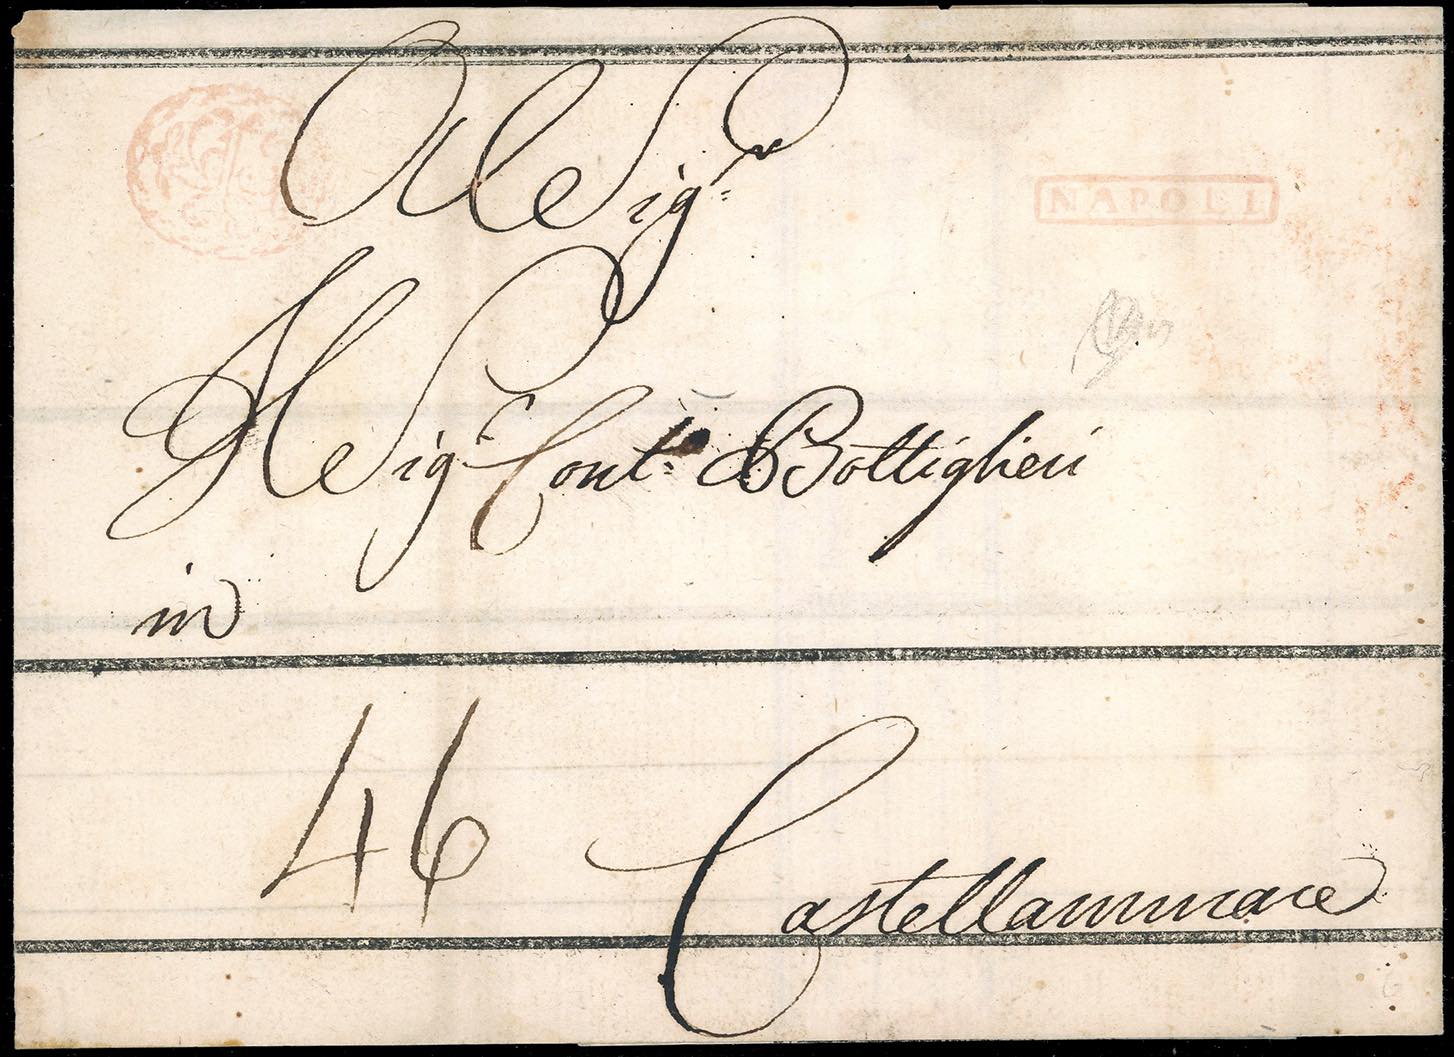 Al Sig.r
NAPOLI
Al Sig.r Cont.e Bottiglieri
in
46
Castellammare